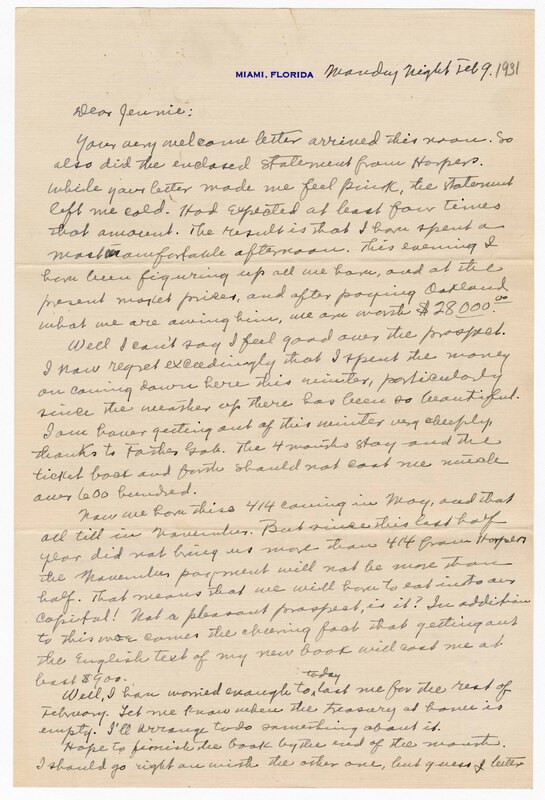 MIAMI, FLORIDA Monday Night Feb 9. 1931
Dear Jennie:
Your very welcome letter arrived this noon. So
also did the enclosed statement from Harpers.
While your letter made me feel pink, the statement
left me cold. Had expected at least four times
that amount. The result is that I have spent a
most uncomfortable afternoon. This evening I
have been figuring up all we have, and at the
present market prices, and after paying Oakland
what we are owing him, we are worth $28000.00
Well I can't say I feel good over the prospect.
I now regret exceedingly that I spent the money
on coming down here this winter, particularly
since the weather up there has been so beautiful.
I am however getting out of this winter very cheeply
thanks to Father Gab. The 4 months stay and the
ticket back and forth should not cost me much
over 600 hundred.
Now we have these 414 coming in May, and that
all till in November. But since this last half
year did not bring us more than 414 from Harpers
the November payment will not be more than
half. That means that we will have to eat into our
capital! Not a pleasant prospect, is it? In addition
to this woe comes the cheering fact that getting out
the English text of my new book will cost me at
least $900.
Well, I have worried enough today to last me for the rest of
February. Let me know when the treasury at home is
empty. I'll arrange to do something about it.
Hope to finish the book by the end of the month.
I should go right on with the other one, but guess I better